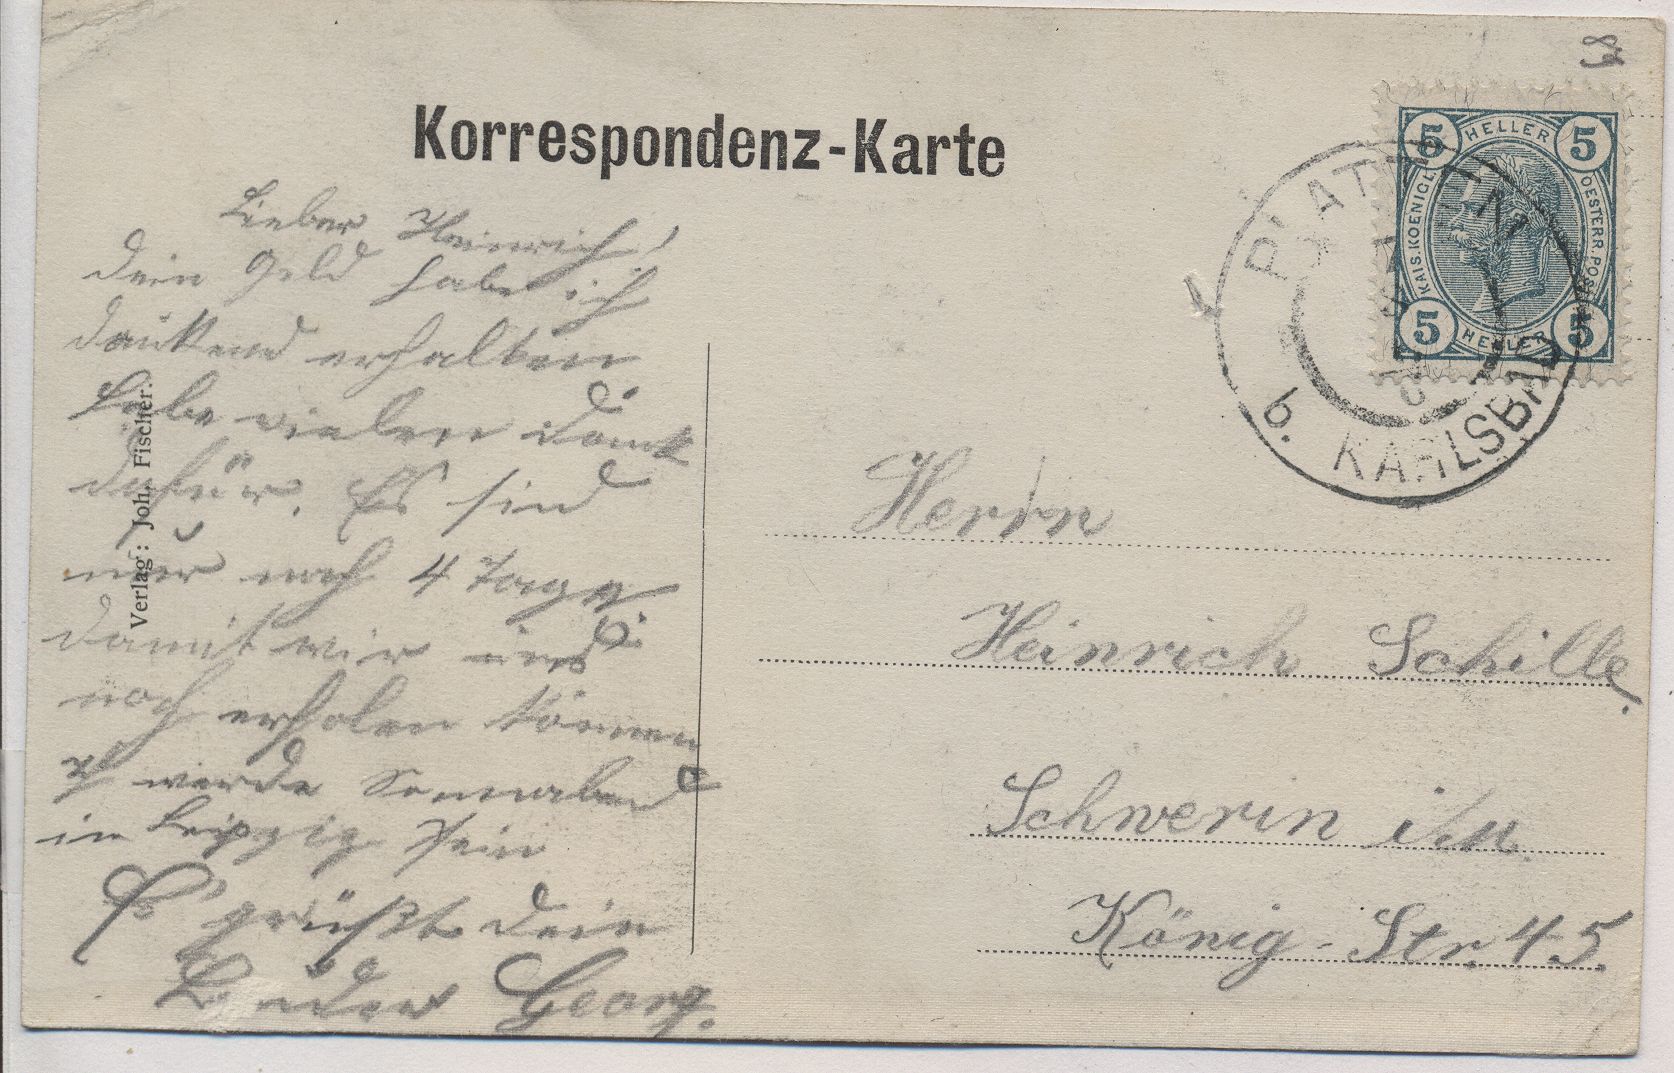 Korrespondenz-Karte
Lieber Heinrich!
dein Geld habe ich
dankend erhalten
habe vielen Dank
dafür. Es sind
nur noch 4 Tage
damit wir uns
noch erholen können
ich werde Sonnabend
in Leipzig sein
Es grüßt dein
Bruder Georg.
Verlag: Joh. Fischer.
5 HELLER 5
KAIS. KOENIGL.
OESTERR. POST
5 HELLER 5
PLATTEN
b. KARLSBAD
Herrn
Heinrich Schille.
Schwerin i/M.
König-Str. 45.